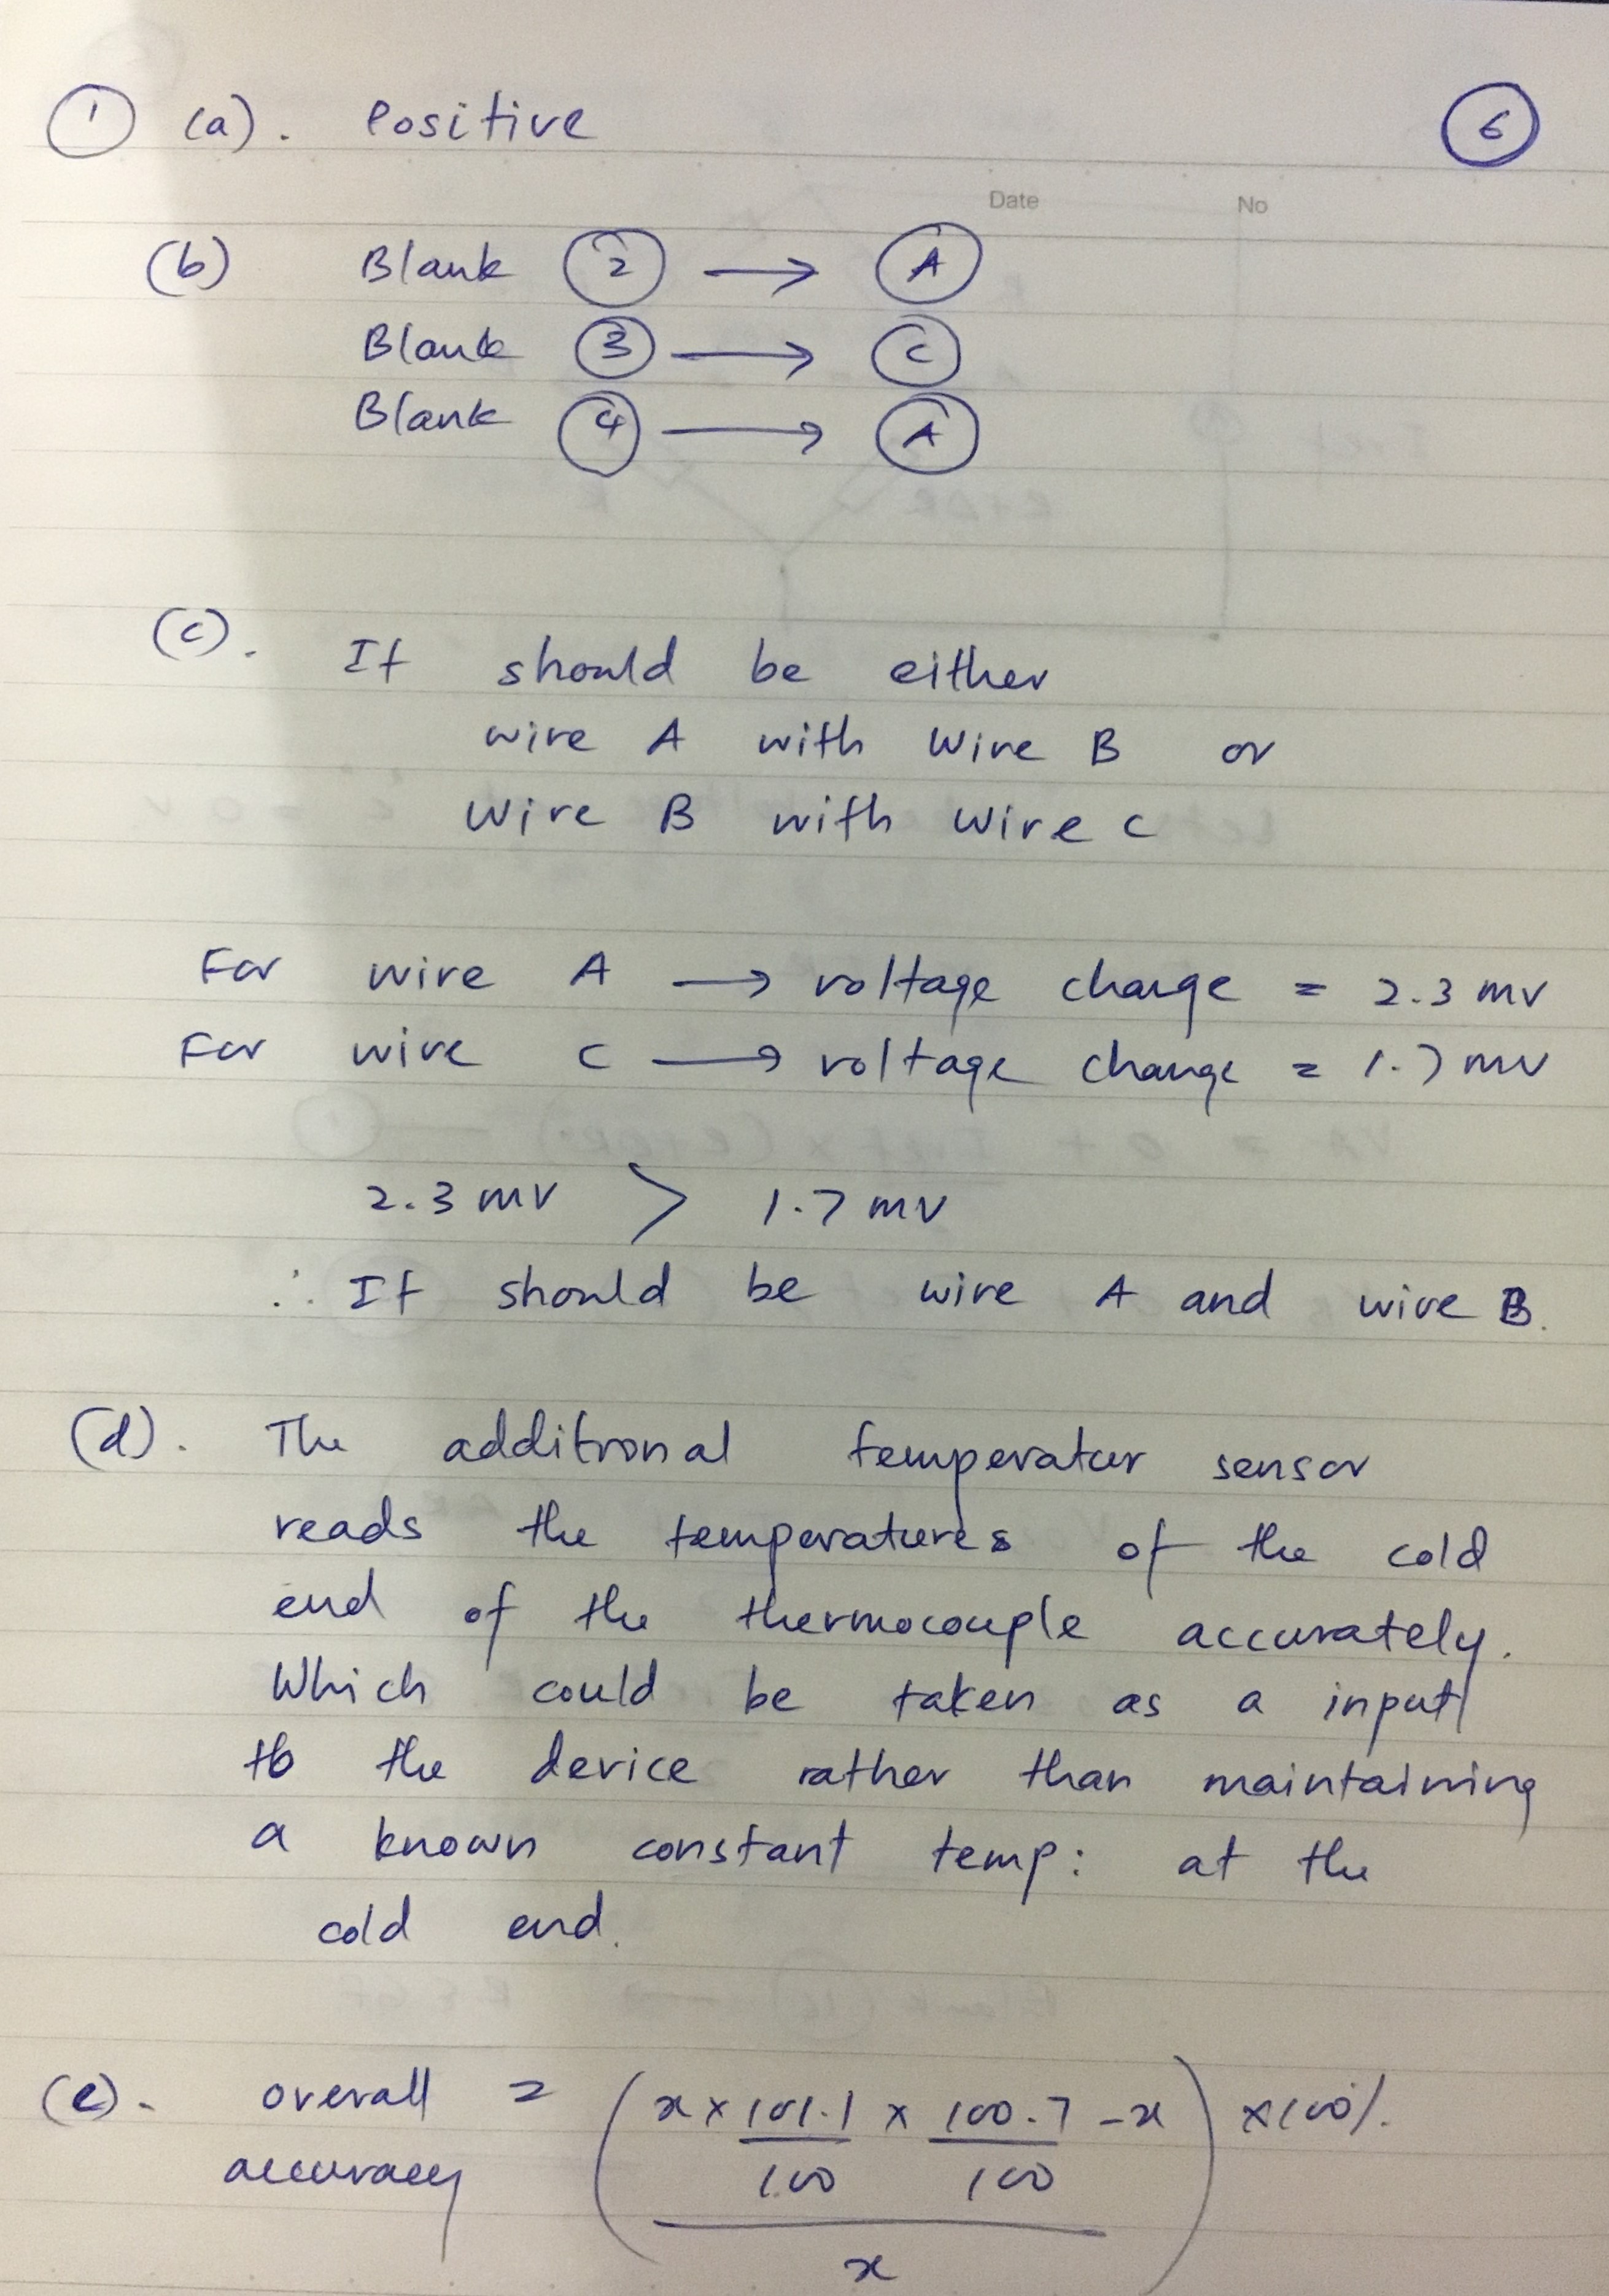 1 (a). Positive 6
Date No
(b) Blank 2 → A
Blank 3 → C
Blank 4 → A
(c). It should be either
wire A with Wire B or
Wire B with wire C
For wire A → voltage change = 2.3 mV
For wire C → voltage change = 1.7 mV
2.3 mV > 1.7 mV
∴ It should be wire A and wire B.
(d). The additional temperatur sensor
reads the temperatures of the cold
end of the thermocouple accurately.
Which could be taken as a input
to the device rather than maintaining
a known constant temp: at the
cold end.
(e). overall = (x × 101.1 × 100.7 - x) × 100%.
accuracy 100 100
x